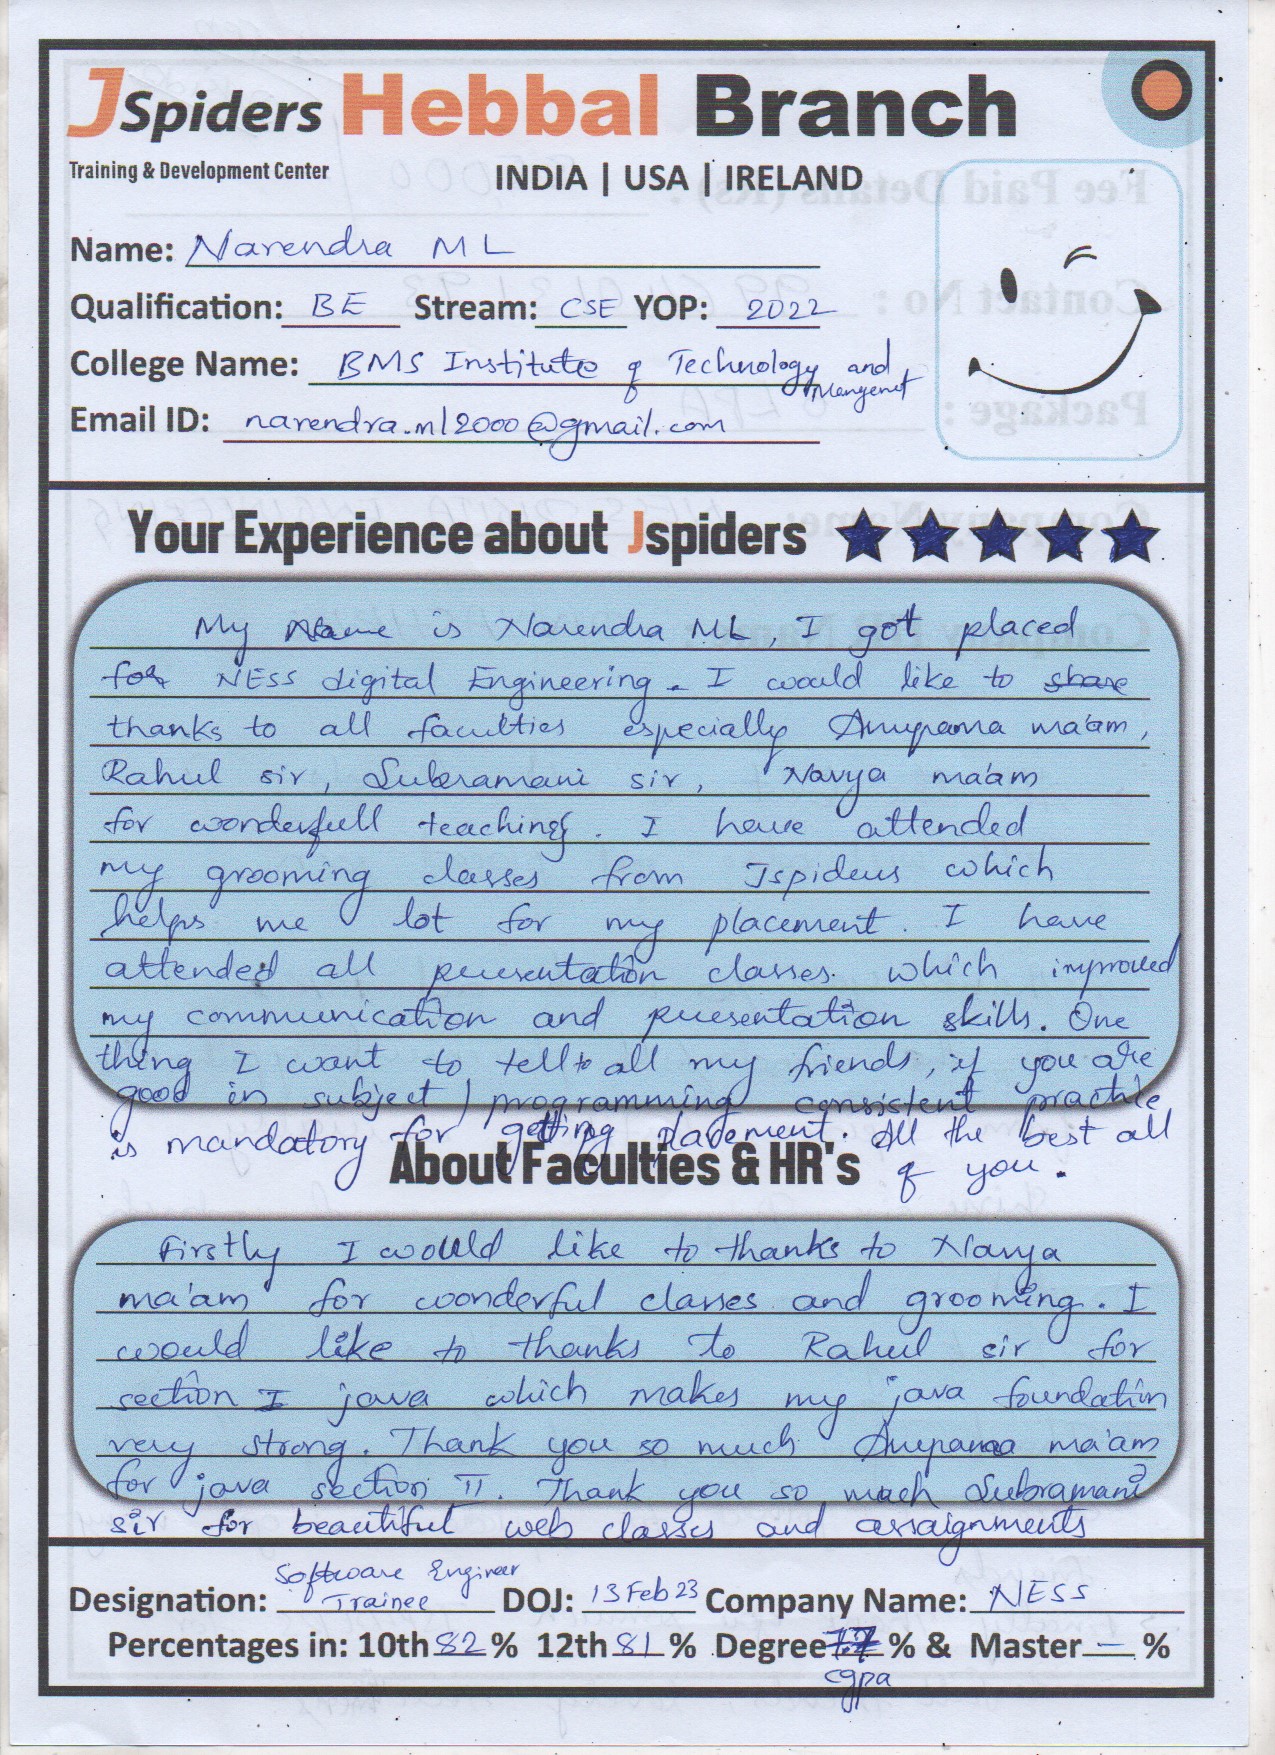 JSpiders Hebbal Branch
Training & Development Center
INDIA | USA | IRELAND
Name: Narendra ML
Qualification: BE Stream: CSE YOP: 2022
College Name: BMS Institute of Technology and
Mangement
Email ID: narendra.ml2000@gmail.com
Your Experience about Jspiders
My Name is Narendra ML, I got placed
for NESS digital Engineering. I would like to share
thanks to all faculties especially Anupama ma'am,
Rahul sir, Subramani sir, Navya ma'am
for wonderfull teaching. I have attended
my grooming classes from Jspiders which
helps me lot for my placement. I have
attended all presentation classes. which improved
my communication and presentation skills. One
thing I want to tell to all my friends, if you are
good in subject / programming consistent practice
is mandatory for getting placement. All the best all
of you.
About Faculties & HR's
Firstly I would like to thanks to Navya
ma'am for wonderful classes and grooming. I
would like to thanks to Rahul sir for
section I java which makes my java foundation
very strong. Thank you so much Anupama ma'am
for java section II. Thank you so much Subramani
sir for beautiful web classes and assaignments
Software Engineer
Designation: Trainee DOJ: 13 Feb 23 Company Name: NESS
Percentages in: 10th 82 % 12th 81 % Degree 7.7 % & Master — %
cgpa